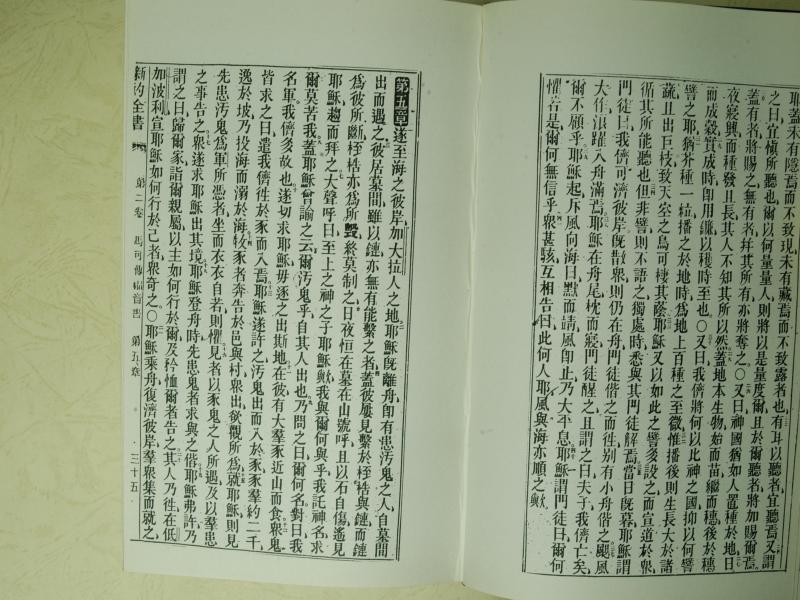 耶蓋未有隱焉而不致現未有藏焉而不致露者也有耳以聽者宜聽焉又謂
之曰宜慎所聽也爾以何量量人則將以是量度爾且於爾聽者將加賜爾焉
蓋有者將賜之無有者幷其所有亦將奪之○又曰神國猶如人置種於地日
夜寢興而種發且長其人不知其所以然蓋地本生物始而苗繼而穗後於穗
而成穀實成時即用鐮以穫時至也○又曰我儕將何以此神之國抑以何譬
譬之耶猶芥種一粒播之於地時爲地上百種之至微惟播後則生長大於諸
蔬且出巨枝致天空之鳥可棲其蔭耶穌又以如此之譬多設之而宣道於衆
循其所能聽也但非譬則不語之獨處時悉與其門徒解焉當日旣暮耶穌謂
門徒曰我儕可濟彼岸旣散衆則仍在舟門徒偕之而往别有小舟偕之颶風
大作浪躍入舟滿焉耶穌在舟尾枕而寢門徒醒之且謂之曰夫子我儕亡矣
爾不願乎耶穌起斥風向海曰默而靖風即止乃大平息耶穌謂門徒曰爾何
懼若是爾何無信乎衆甚駭互相告曰此何人耶風與海亦順之歟
第五章遂至海之彼岸加大拉人之地耶穌旣離舟卽有患汚鬼之人自墓間
出而遇之彼居墓間雖以鏈亦無有能繫之者蓋彼屢見繫於桎梏與鏈而鏈
爲彼所斷桎梏亦爲所毀終莫制之日夜恒在墓在山號呼且以石自傷遙見
耶穌趨而拜之大聲呼曰至上之神之子耶穌歟我與爾何與乎我託神名求
爾莫苦我蓋耶穌曾諭之云爾汚鬼乎自其人出也乃問之曰爾何名對曰我
名軍我儕多故也遂切求耶穌毋逐之出斯地在彼有大羣豕近山而食衆鬼
皆求之曰遣我儕往於豕而入焉耶穌遂許之汚鬼出而入於豕豕羣約二千
逸於坡乃投海而溺於海牧豕者奔告於邑與村衆出欲觀所爲就耶穌則見
先患汚鬼爲軍所憑者坐而衣衣自若則懼見者以豕鬼之人所遇及以羣患
之事告之衆遂求耶穌出其境耶穌登舟時先患鬼者求與之偕耶穌弗許乃
謂之曰歸爾家詣爾親屬以主如何行於爾及矜恤爾者告之其人乃往在低
加波利宣耶穌如何行於己者衆奇之○耶穌乘舟復濟彼岸羣衆集而就之
新約全書 第二卷 馬可傳福音書 第五章 三十五